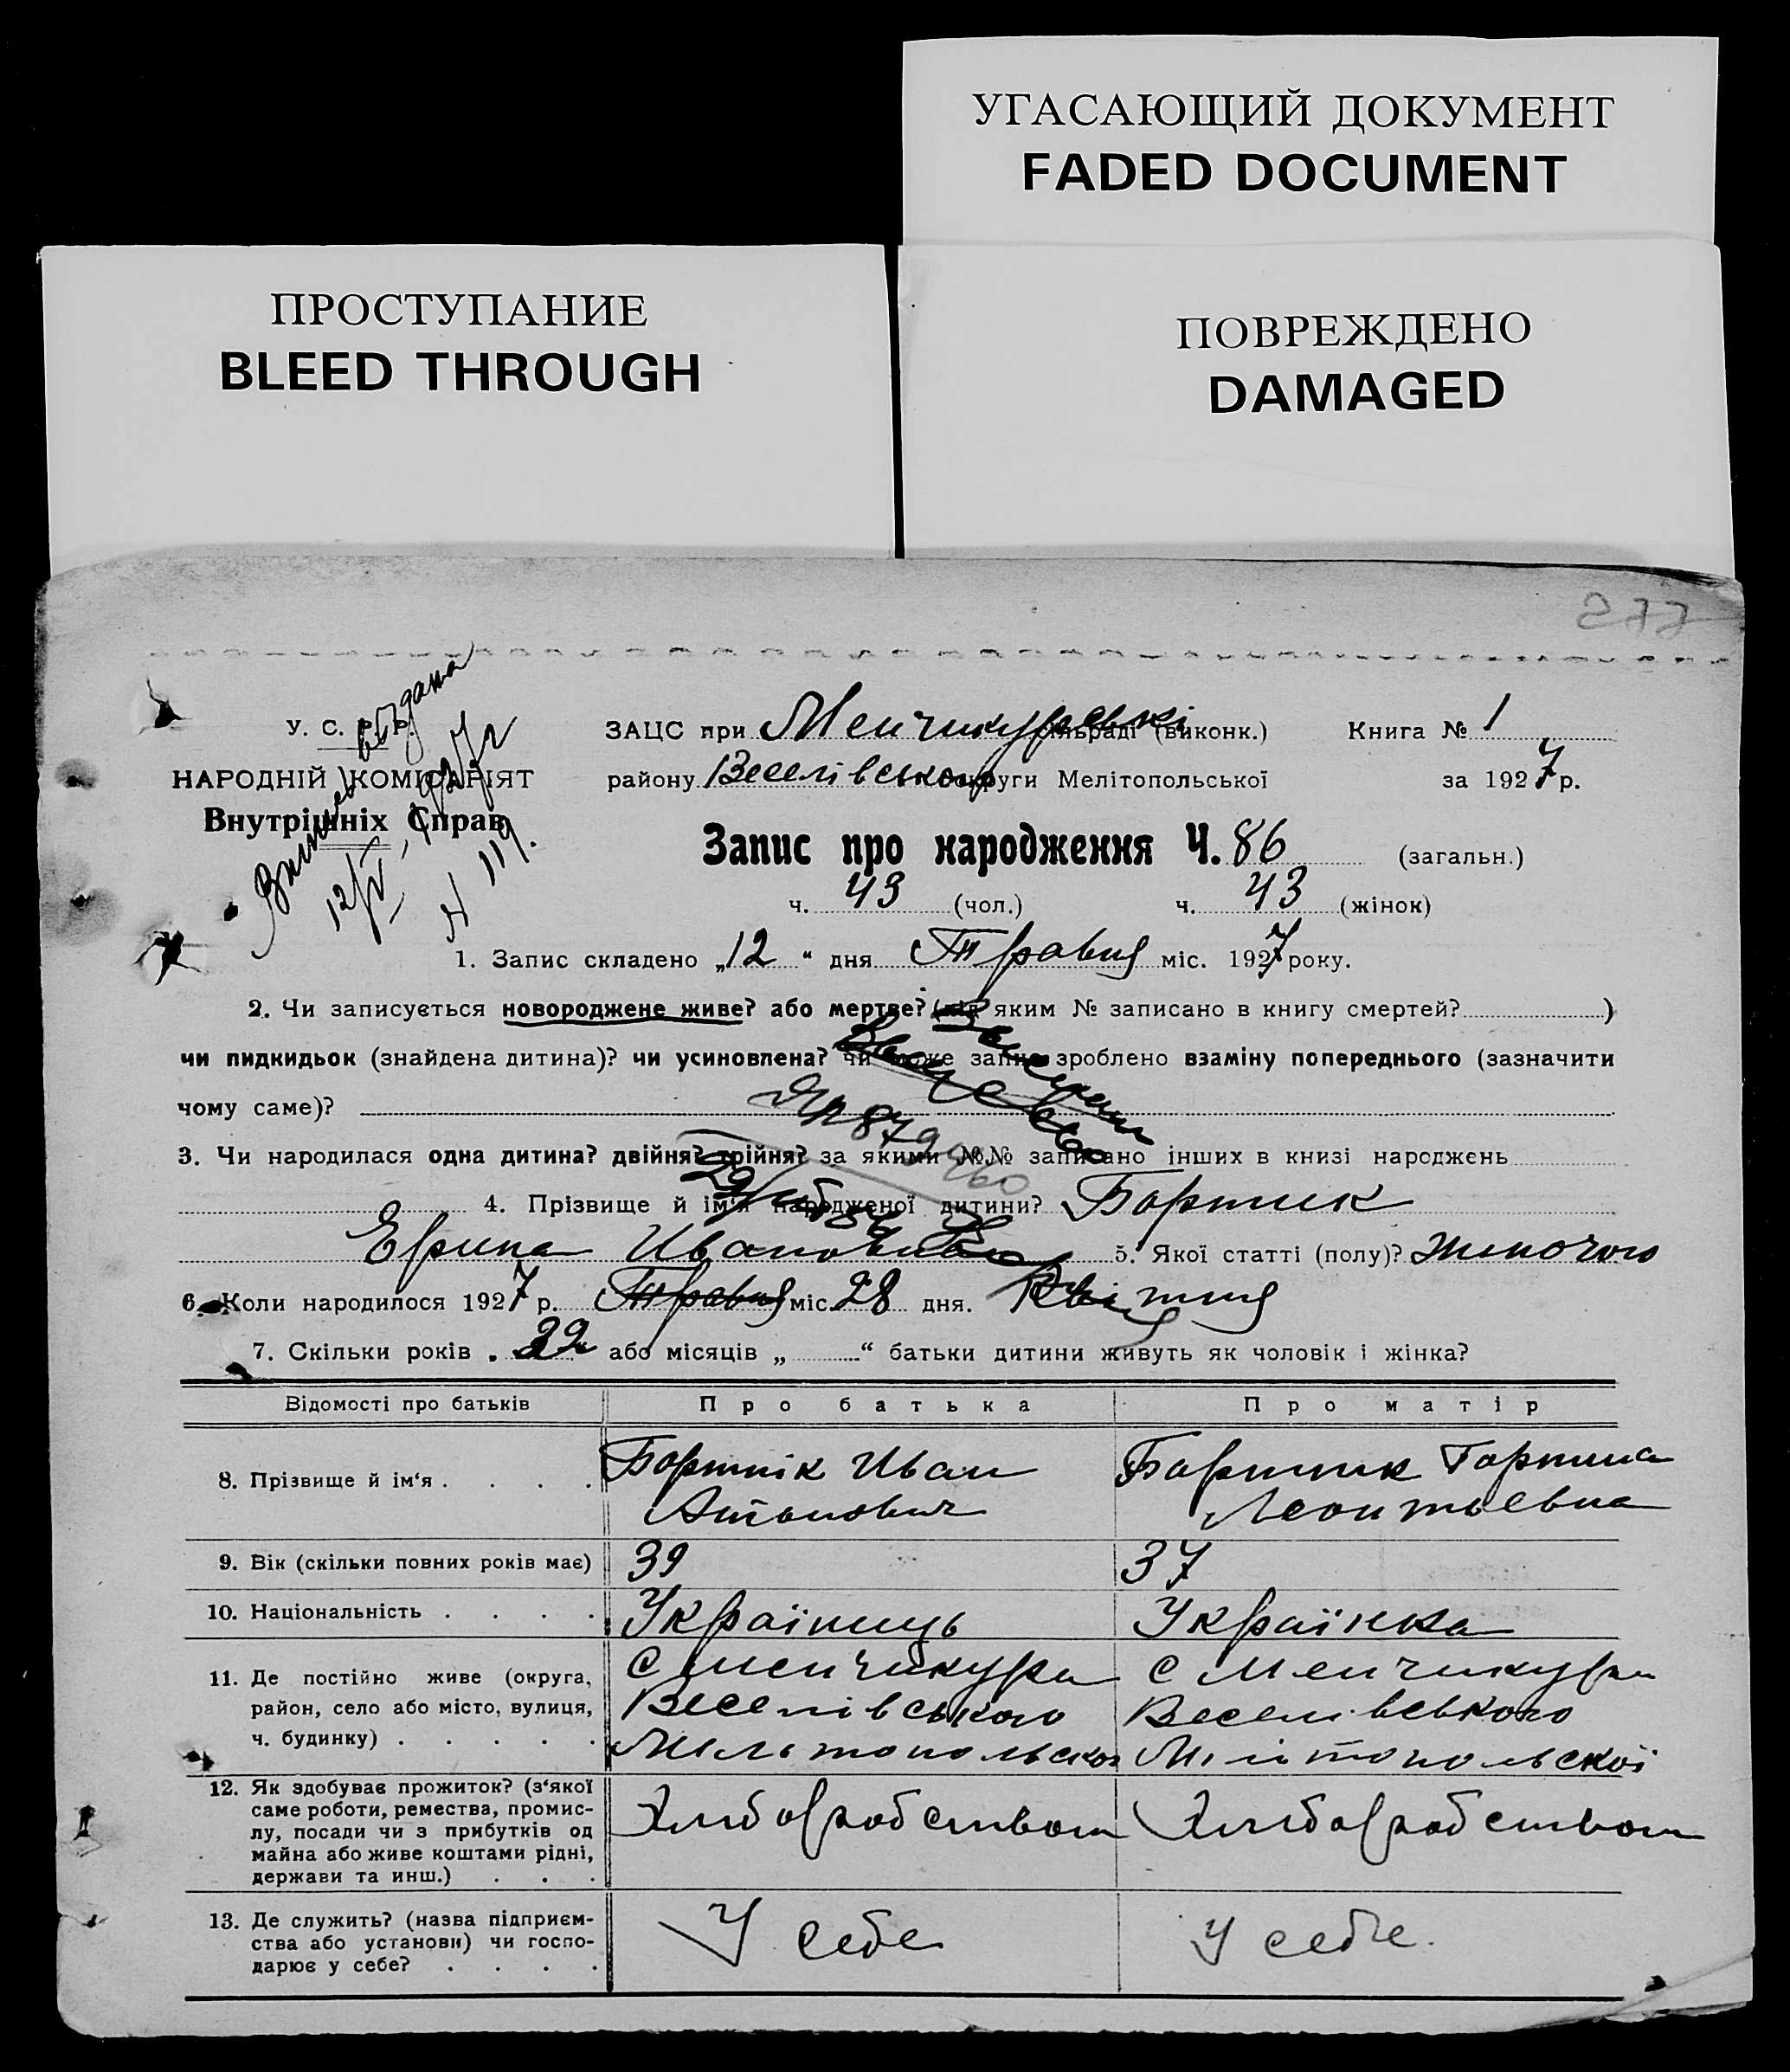 УГАСАЮЩИЙ ДОКУМЕНТ
FADED DOCUMENT
ПРОСТУПАНИЕ
BLEED THROUGH
ПОВРЕЖДЕНО
DAMAGED
277
У. С. Р. Р.
НАРОДНІЙ КОМІСАРІЯТ
Внутрішніх Справ
видана
12/V 1927 г
№ 119.
ЗАЦС при Менчикурській сільраді (виконк.) Книга № 1
району Веселівського округи Мелітопольської за 1927 р.
Запис про народження Ч. 86 (загальн.)
ч. 43 (чол.) ч. 43 (жінок)
1. Запис складено „12“ дня Травня міс. 1927 року.
2. Чи записується новороджене живе? або мертве? (під яким № записано в книгу смертей? )
чи пидкидьок (знайдена дитина)? чи усиновлена? чи може запис зроблено взаміну попереднього (зазначити
чому саме)?
3. Чи народилася одна дитина? двійня? трійня? за якими №№ записано інших в книзі народжень
4. Прізвище й ім‘я народженої дитини? Бортник
Ерина Ивановна 5. Якої статті (полу)? жиночого
6. Коли народилося 1927 р. Травня міс. 28 дня. Квітня
7. Скільки років „ “ або місяців „ “ батьки дитини живуть як чоловік і жінка?
Відомості про батьків Про батька Про матір
8. Прізвище й ім‘я . . . . Бортнік Иван Бортник
Леонтьевна
9. Вік (скільки повних років має) 39 37
10. Національність . . . . Українець Українка
11. Де постійно живе (округа, с Менчикури с Менчикури
район, село або місто, вулиця, Веселівського Веселівського
ч. будинку) . . . . . Мелітопольскої Мелітопольскої
12. Як здобуває прожиток? (з‘якої
саме роботи, ремества, промис-
лу, посади чи з прибутків од Хлиборобством Хлиборобством
майна або живе коштами рідні,
держави та инш.) . . .
13. Де служить? (назва підприєм-
ства або установи) чи госпо- У себе У себе.
дарює у себе? . . . .